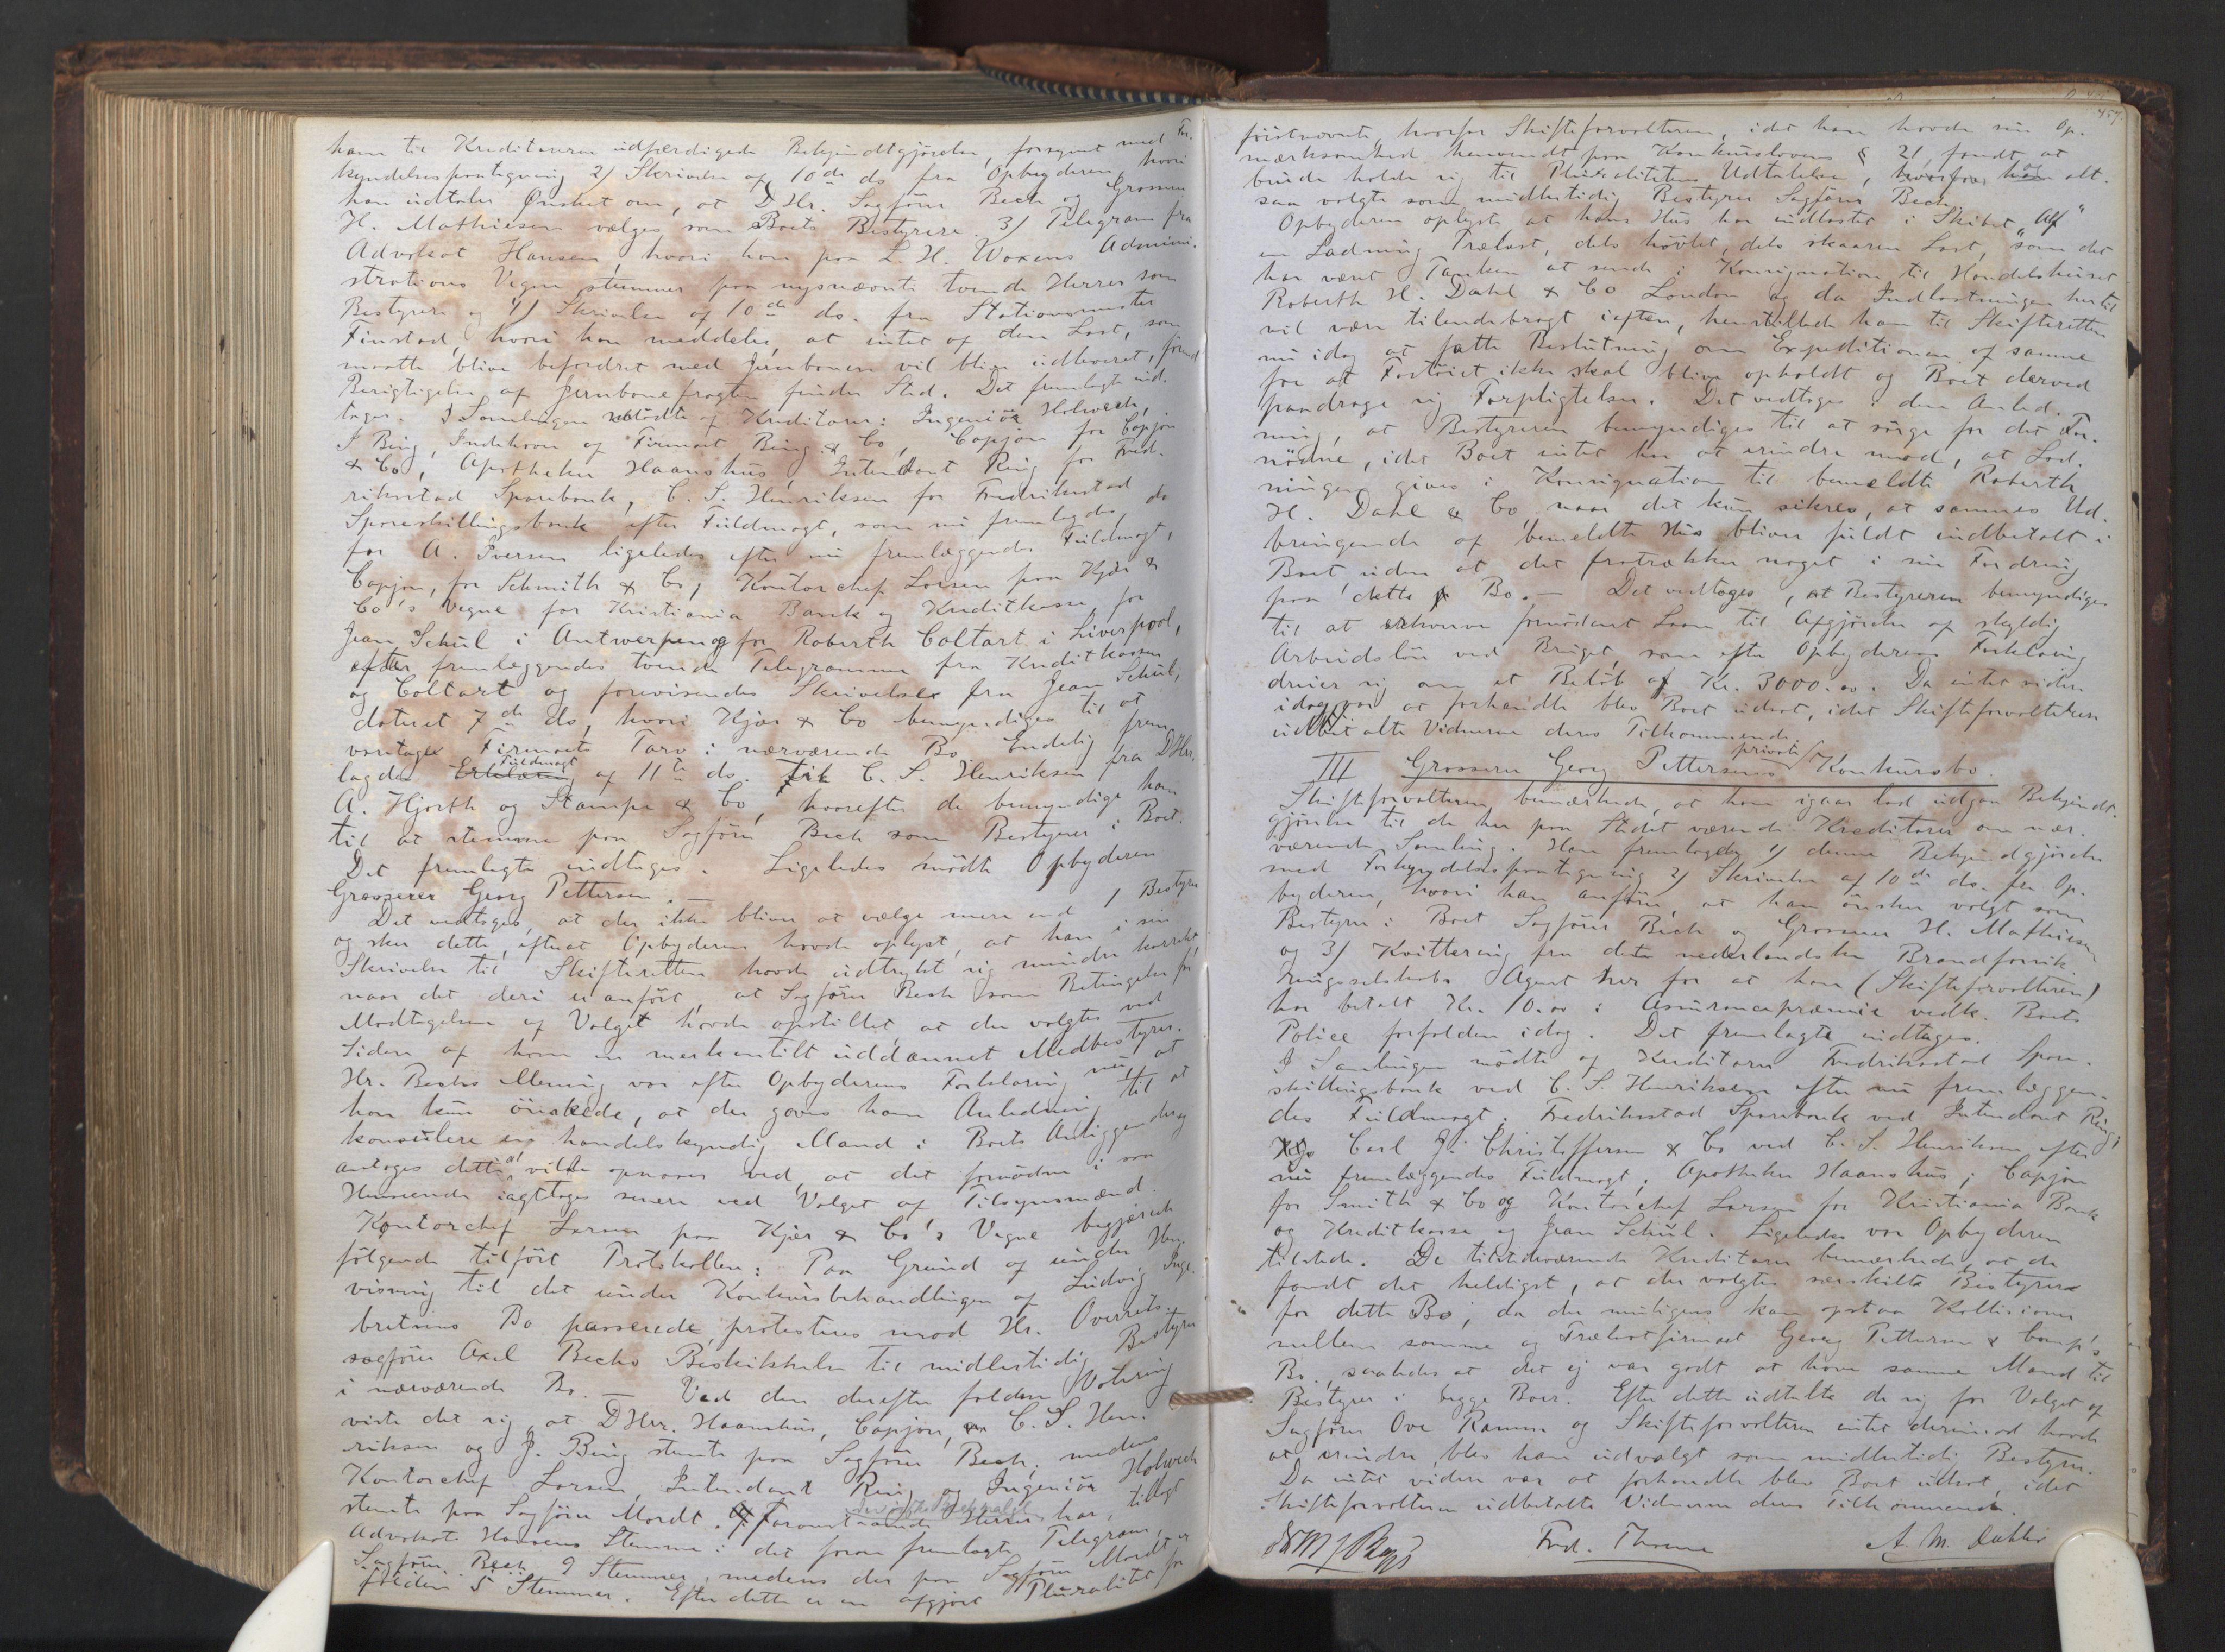 ham til Kreditorerne udfærdigede Bekjendtgjørelse, forsynet med For-
kyndelsespaategning 2/ Skrivelse af 10de ds fra Opbyderen, hvori
han udtaler Ønsket om, at DHr. Sagfører Bech og Grosserer
H. Mathiesen vælges som Boets Bestyrere. 3/ Telegram fra
Advokat Hansen, hvori han paa L. H. Woxens Admini-
strations Vegne stemmer paa nysnævnte tvende Herrer som
Bestyrere og 4/ Skrivelse af 10de ds. fra Stationsmester
Finstad, hvori han meddeler, at intet af den Last, som
maatte blive befordret med Jernbanen vil blive udleveret, førend
Berigtigelse af Jernbanefragten finder Sted. Det fremlagte ind-
tages. I Samlingen mødte af Kreditorer: Ingeniør Holwech,
J Bing, Indehaver af Firmaet Bing & Co, Capjon for Capjon
& Co, Apotheker Haanshus, Intendant Ring for Fred-
riksstad Sparebank, C. S. Henriksen for Fredriksstad
Spareskillingsbank efter Fuldmagt, som nu fremlagdes, do
for A. Iversen ligeledes efter nu fremlæggende Fuldmagt,
Capjon, for Schmith & Co, Kontorchef Larsen paa Kjær &
Co's Vegne for Kristiania Bank og Kreditkasse, for
Jean Schul i Antwerpen og for Roberth Coltart i Liverpool,
efter fremlæggendes tvende Telegrammer fra Kreditkassen
og Coltart og forevisendes Skrivelse fra Jean Schul,
dateret 7de ds, hvori Kjær & Co bemyndiges til at
varetage Firmaets Tarv i nærværende Bo. Endelig frem-
lagdes Erklæring Fuldmagt af 11te ds. til C. S. Henriksen fra DHrr.
A. Hjorth og Stampe & Co, hvorefter de bemyndige ham
til at stemme paa Sagfører Bech som Bestyrer i Boet.
Det fremlagte indtages. Ligeledes mødte Opbyderen
Grosserer Georg Pettersen. —
Det vedtoges, at der ikke bliver at vælge mere end 1 Bestyrer
og sker dette, efterat Opbyderen havde oplyst, at han i sin
Skrivelse til Skifteretten havde udtrykt sig mindre korrekt,
naar det deri er anført, at Sagfører Bech som Betingelse for
Modtagelsen af Valget havde opstillet, at der valgtes ved
Siden af ham en merkantilt uddannet Medbestyrer.
Hr. Bechs Mening var efter Opbyderens Forklaring nu, at
han kun ønskede, at der gaves ham Anledning til at
konsulere en handelskyndig Mand i Boets Anliggender og
antoges dette at ville opnaaes ved, at det fornødne i saa
Henseende iagttages senere ved Valget af Tilsynsmænd.
Kontorchef Larsen paa Kjær & Co's Vegne begjærede
følgende tilført Protokollen: Paa Grund af under Hen-
visning til det under Konkursbehandlingen af Ludvig Inge-
bretsens Bo passerede, protesteres mod Hr. Overrets-
sagfører Axel Bechs Beskikkelse til midlertidig Bestyrer
i nærværende Bo. — Ved den derefter foldne Votering
viste det sig, at DHrr. Haanshus, Capjon, C. S. Hen-
riksen og J. Bing stemte paa Sagfører Bech; medens
Kontorchef Larsen, Intendant Ring og Ingeniør Holwech
stemte paa Sagfører Mordt. Foranstaaende Herrer har, tillagt
Advokat Hansens Stemme i det foran fremlagte Telegram, er
Sagfører Bech 9 Stemmer, medens der paa Sagfører Mordt er
folden 5 Stemmer. Efter dette er en afgjort Pluralitet for
457.
førstnævnte, hvorfor Skifteforvalteren, idet han havde sin Op-
mærksomhed henvendt paa Konkurslovens § 21, fandt at
burde holde sig til Pluralitetens Udtalelse, og alt-
saa valgte som midlertidig Bestyrer Sagfører Bech.
Opbyderen oplyste at hans Hus har indlastet i Skibet "Alf"
en Ladning Trælast, dels høvlet, dels skaaren Last, som det
har været Tanken at sende i Konsignation til Handelshuset
Roberth H. Dahl & Co London og da Indlastningen hertil
vil være tilendebragt iaften, henstillede han til Skifteretten
nu idag at fatte Beslutning om Expeditionen af samme
for at Fartøiet ikke skal blive opholdt og Boet derved
paadrage sig Forpligtelser. Det vedtoges i den Anled-
ning, at Bestyreren bemyndiges til at sørge for det For-
nødne, idet Boet intet har at erindre mod, at Lad-
ningen gives i Konsignation til bemeldte Roberth
H. Dahl & Co naar det kun sikres, at sammes Ud-
bringende af bemeldte Hus bliver fuldt indbetalt i
Boet uden at det fratrækker noget i sin Fordring
paa dette Bo. — Det vedtoges, at Bestyreren bemyndiges
til at erhverve fornødent Laan til Afgjørelse af skyldig
Arbeidsløn ved Bruget som efter Opbyderens Forklaring
dreier sig om et Beløb af Kr. 3000.00. Da intet videre
idag var at forhandle blev Boet udsat, idet Skifteforvalteren
udbetalte Vidnerne deres Tilkommende.
III Grosserer Georg Pettersens private Konkursbo.
Skifteforvalteren bemærkede, at han igaar lod udgaa Bekjendt-
gjørelse til de her paa Stedet værende Kreditorer om nær-
værende Samling. Han fremlagde 1/ denne Bekjendtgjørelse
med Forkyndelsespaategning 2/ Skrivelse af 10de ds. fra Op-
byderen, hvori han anfører, at han ønsker valgt som
Bestyrer i Boet Sagfører Bech og Grosserer H. Mathiesen
og 3/ Kvittering fra det nederlandske Brandforsik-
ringsselskabs Agent her for at han (Skifteforvalteren)
har betalt Kr. 10.00 i Assurancepræmie vedk. Boets
Police forfalden idag. Det fremlagte indtages.
I Samlingen mødte af Kreditorer Fredriksstad Spare-
skillingsbank ved C. S. Henriksen efter nu fremlæggen-
des Fuldmagt; Fredriksstad Sparebank ved Intendant Ring;
Carl J. Christoffersen & Co ved C. S. Henriksen efter
nu fremlæggendes Fuldmagt; Apotheker Haanshus; Capjon
for Smith & Co og Kontorchef Larsen for Kristiania Bank
og Kreditkasse og Jean Schul. Ligeledes var Opbyderen
tilstede. De tilstedeværende Kreditorer bemærkede, at de
fandt det heldigst, at der valgtes særskilte Bestyrere
for dette Bo; da der muligens kan opstaa Kollisioner
mellem samme og Trælastfirmaet Georg Pettersen & Comp's
Bo, saaledes at det ej var godt at have samme Mand til
Bestyrer i begge Boer. Efter dette udtalte de sig for Valget af
Sagfører Ove Ramm og Skifteforvalteren intet derimod havde
at erindre, blev han udvalgt som midlertidig Bestyrer.
Da intet videre var at forhandle blev Boet udsat, idet
Skifteforvalteren udbetalte Vidnerne deres Tilkommende.
Fred. Thorne A. M. Dahler